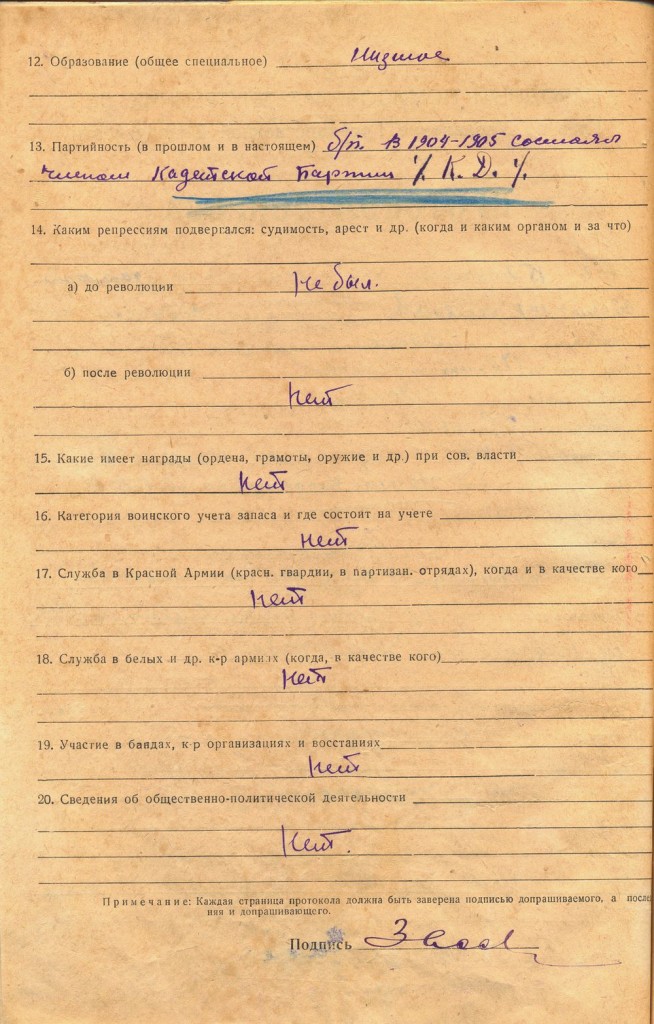 12. Образование (общее специальное) Низшее
13. Партийность (в прошлом и в настоящем) б/п. В 1904-1905 состоял
членом Кадетской Партии /К. Д./.
14. Каким репрессиям подвергался: судимость, арест и др. (когда и каким органом и за что)
а) до революции Не был.
б) после революции
Нет
15. Какие имеет награды (ордена, грамоты, оружие и др.) при сов. власти
Нет
16. Категория воинского учета запаса и где состоит на учете
нет
17. Служба в Красной Армии (красн. гвардии, в партизан. отрядах), когда и в качестве кого
Нет
18. Служба в белых и др. к-р армиях (когда, в качестве кого)
Нет
19. Участие в бандах, к-р организациях и восстаниях
Нет
20. Сведения об общественно-политической деятельности
Нет.
Примечание: Каждая страница протокола должна быть заверена подписью допрашиваемого, а после
няя и допрашивающего.
Подпись